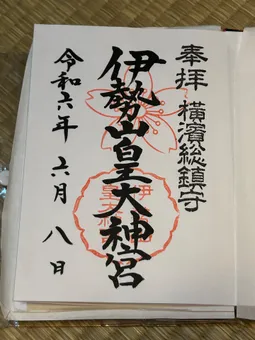 奉拝 横濱総鎮守
伊勢山皇大神宮
令和六年 六月 八日